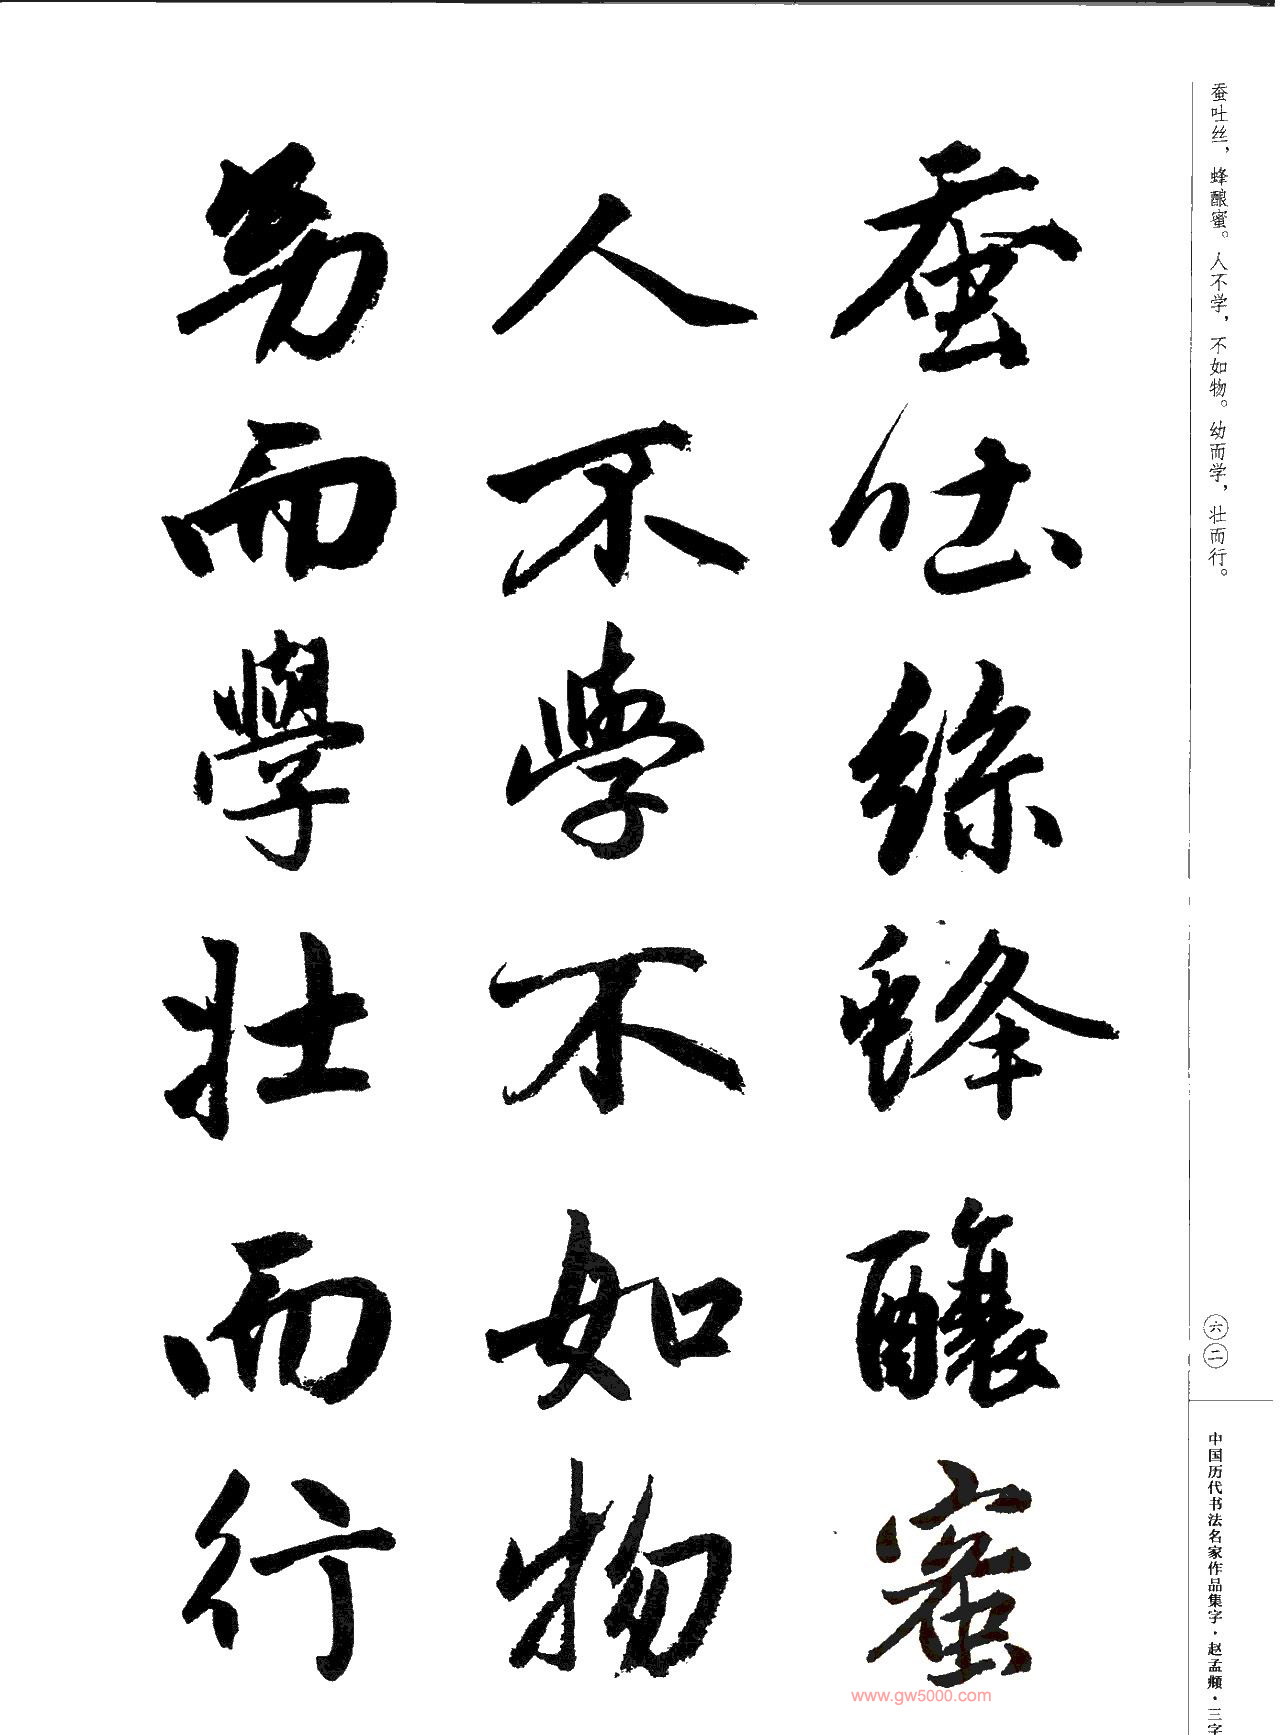 蚕吐丝，蜂酿蜜。人不学，不如物。幼而学，壮而行。
蚕吐絲蜂釀蜜
人不學不如物
㓜而學壯而行
六二
中国历代书法名家作品集字·赵孟頫·三字
www.gw5000.com